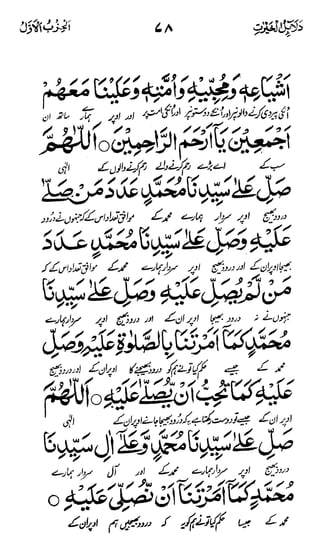 الحزب الاول ٧٨ دلائل الخيرات
اَشْيَاعِهٖ وَمُحِبِّيْهِ وَاُمَّتِهٖ وَعَلَيْنَا مَعَهُمْ
اَجْمَعِيْنَ يَا اَرْحَمَ الرَّاحِمِيْنَ ○ اَللّٰهُمَّ
سب کے اے بڑے رحم کرنے والے رحم کرنے والوں کے الٰہی
صَلِّ عَلٰى سَيِّدِنَا مُحَمَّدٍ عَدَدَ مَنْ صَلّٰى
درود بھیج اوپر سردار ہمارے محمد کے موافق تعداد اس کے کہ جنہوں نے درود
عَلَيْهِ وَصَلِّ عَلٰى سَيِّدِنَا مُحَمَّدٍ عَدَدَ
بھیجا اوپر ان کے اور درود بھیج اوپر سردار ہمارے محمد کے موافق تعداد اس کے کہ
مَنْ لَّمْ يُصَلِّ عَلَيْهِ وَصَلِّ عَلٰى سَيِّدِنَا
جنہوں نے نہ درود بھیجا اوپر ان کے اور درود بھیج اوپر سردار ہمارے
مُحَمَّدٍ كَمَا اَمَرْتَنَا بِالصَّلٰوةِ عَلَيْهِ وَصَلِّ
محمد کے جیسے حکم کیا تو نے ہم کو درود بھیجنے کا اوپر ان کے اور درود بھیج
عَلَيْهِ كَمَا تُحِبُّ اَنْ يُّصَلّٰى عَلَيْهِ ○ اَللّٰهُمَّ
اوپر ان کے جیسے تو دوست رکھتا ہے یہ کہ درود بھیجا جائے اوپر ان کے الٰہی
صَلِّ عَلٰى سَيِّدِنَا مُحَمَّدٍ وَّعَلٰى اٰلِ سَيِّدِنَا
درود بھیج اوپر سردار ہمارے محمد کے اور اوپر آل سردار ہمارے
مُحَمَّدٍ كَمَا اَمَرْتَنَا اَنْ نُّصَلِّىَ عَلَيْهِ ○
محمد کے جیسا حکم کیا تو نے ہم کو یہ کہ درود بھیجیں ہم اوپر ان کے